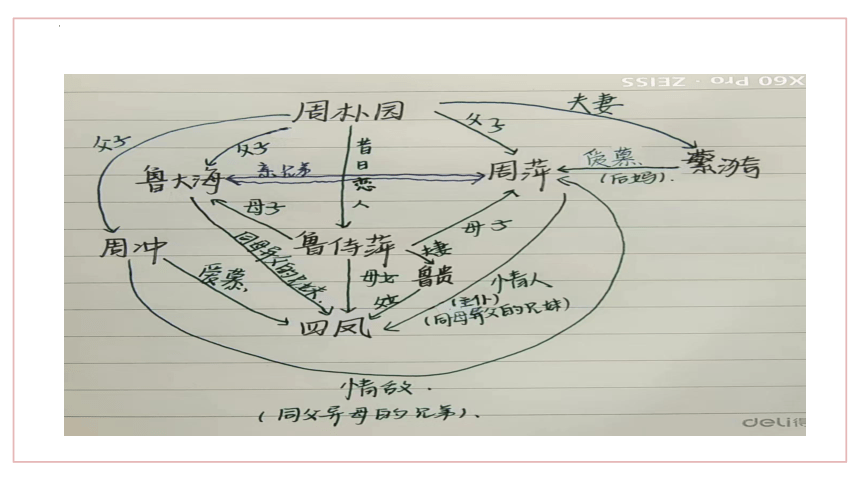 X60 Pro · ZEISS
周朴园
夫妻
父子
父子
父子
昔日恋人
亲兄弟
鲁大海
周萍
爱慕
(后妈).
蘩漪
母子
母子
周冲
同母异父的兄妹.
鲁侍萍
夫妻
鲁贵
爱慕,
母女
父女
情人
(主仆)
(同母异父的兄妹)
四凤
情敌.
(同父异母的兄弟).
deli得